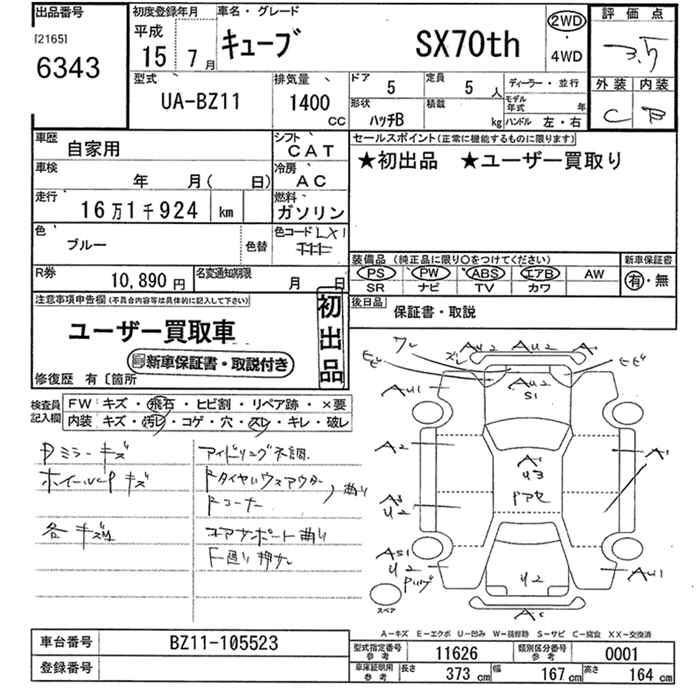 出品番号
[2165]
6343
初度登録年月
平成
15 年 7 月
車名・グレード
キューブ SX70th
2WD
・
4WD
評価点
3.5
外装 内装
C B
型式
UA-BZ11
排気量
1400 cc
ドア
5
定員
5 人
ディーラー・並行
形状
ハッチB
積載
kg
モデル年式 年
ハンドル 左・右
車歴
自家用
シフト
CAT
車検
年 月( 日)
冷房
AC
走行
16万1千924 km
燃料
ガソリン
色
ブルー
色替
色コード LX1
R券
10,890 円
名変通知期限
月 日
セールスポイント(正常に機能するものに限ります)
★初出品 ★ユーザー買取り
装備品 (純正品に限り○をつけてください)
PS PW ABS エアB AW
SR ナビ TV カワ
新車保証書
有・無
後日品
保証書・取説
注意事項申告欄(不具合内容等は具体的に記入して下さい)
ユーザー買取車
新車保証書・取説付き
初出品
修復歴 有〔箇所
検査員記入欄
FW キズ・飛石・ヒビ割・リペア跡・×要
内装 キズ・汚レ・コゲ・穴・スレ・キレ・破レ
Dミラーキズ
アイドリング不調
各キズ凹
コアサポート曲り
ワレ
ズレ
ヒビ
AU2
AU2
A
ヒビ
AU1
AU2
S1
A2
A
U3
A
U2
AS1
U2
U2
AU1
スペア
A-キズ E-エクボ U-凹み W-補修跡 S-サビ C-腐食 XX-交換済
車台番号
BZ11-105523
登録番号
型式指定番号 参考
11626
類別区分番号 参考
0001
車庫証明用 参考
長さ 373 cm
幅 167 cm
高さ 164 cm